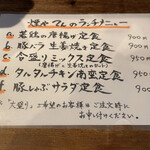 煙や てんのランチメニュー
a. 若鶏の唐揚げ定食 900円
b. 豚バラ生姜焼き定食 900円
c. 合盛りミックス定食 950円
(唐揚げと生姜焼きのセット)
d. タルタルチキン南蛮定食 950円
f. 豚しゃぶサラダ定食 900円
※"大盛り"ご希望のお客様はご注文時に
お申し付けください。